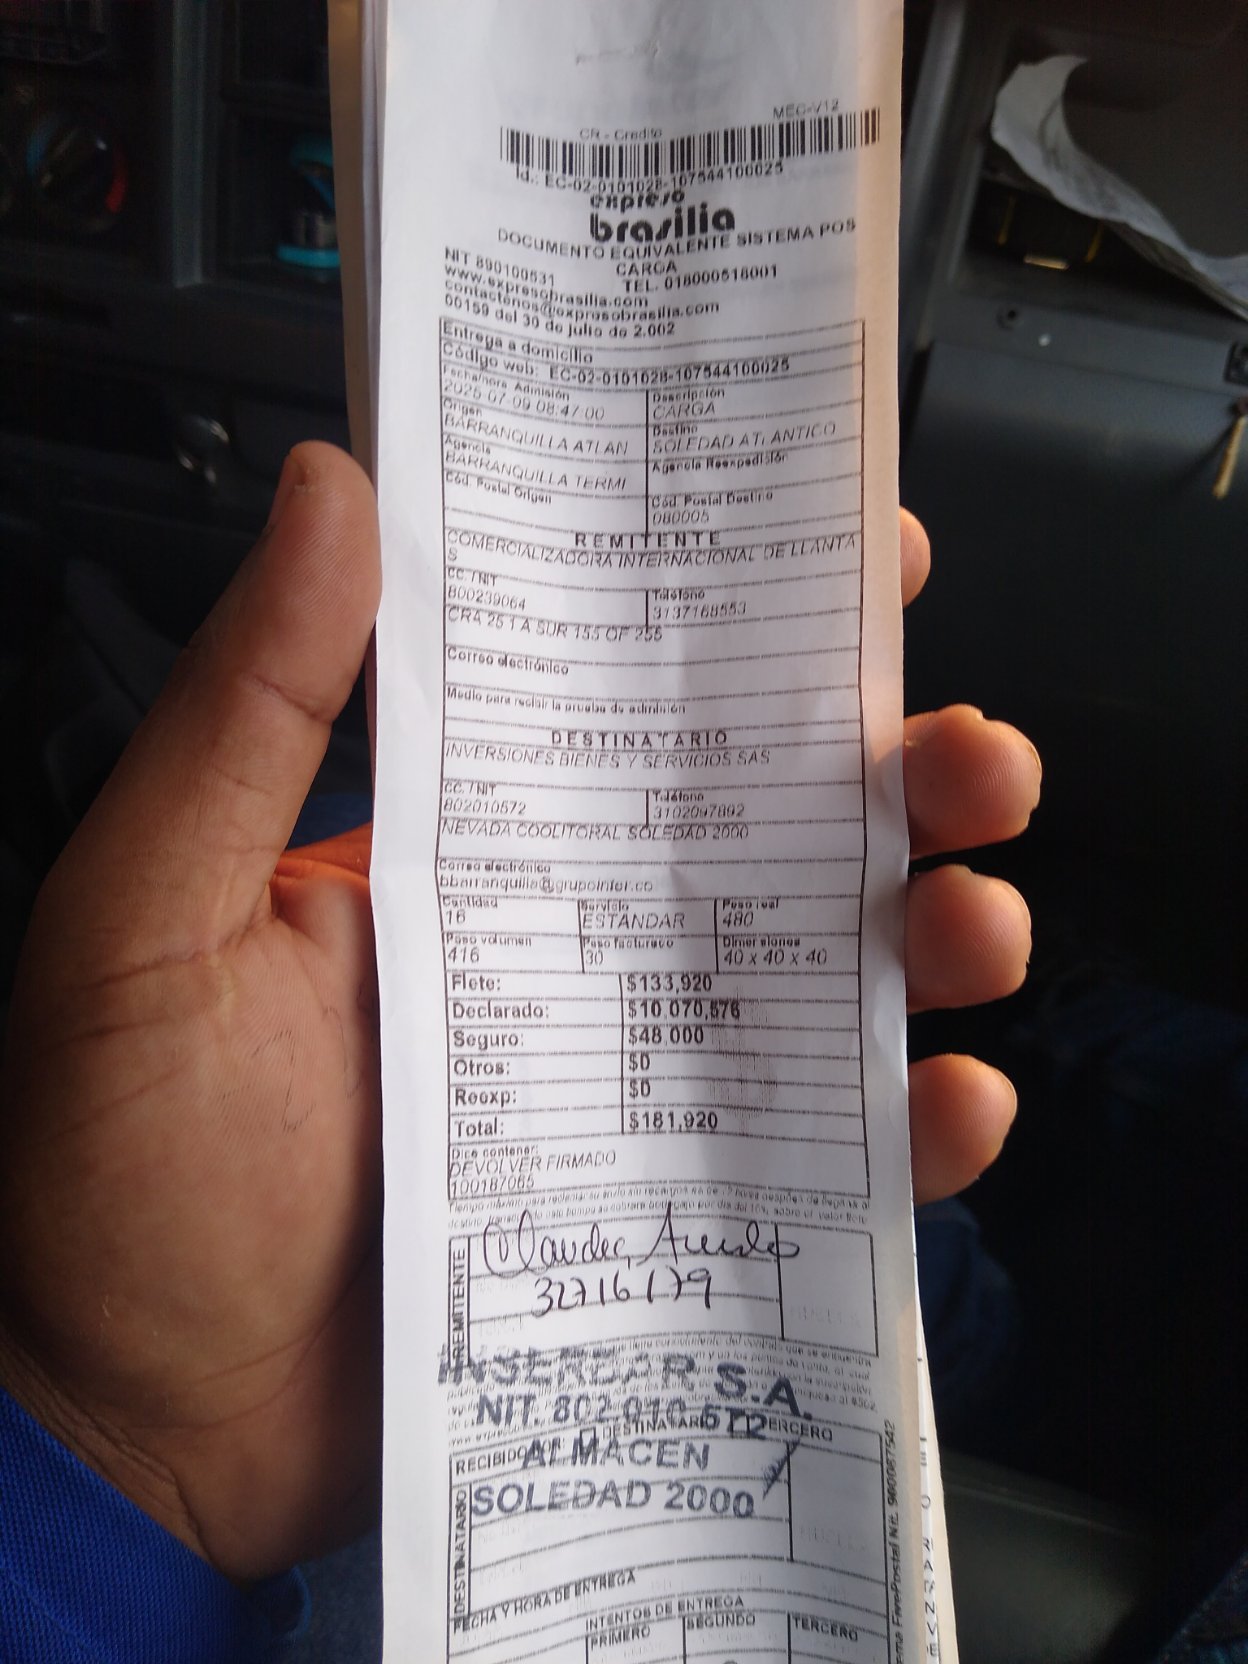 MEC-V12
CR - Credito
Id.: EC-02-0101028-107544100025
expreso
brasilia
DOCUMENTO EQUIVALENTE SISTEMA POS
CARGA
NIT 890100531 TEL. 018000518001
www.expresobrasilia.com
contactenos@expresobrasilia.com
00159 del 30 de julio de 2.002
Entrega a domicilio
Código web: EC-02-0101028-107544100025
Fecha/hora Admisión Descripción
2025-07-09 08:47:00 CARGA
Origen Destino
BARRANQUILLA ATLAN SOLEDAD ATLANTICO
Agencia Agencia Reexpedición
BARRANQUILLA TERMI
Cód. Postal Origen Cód. Postal Destino
080005
REMITENTE
COMERCIALIZADORA INTERNACIONAL DE LLANTA
S
CC. / NIT Teléfono
800239064 3137168553
CRA 25 1 A SUR 155 OF 255
Correo electrónico
Medio para recibir la prueba de admisión
DESTINATARIO
INVERSIONES BIENES Y SERVICIOS SAS
CC. / NIT Teléfono
802010572 3102097892
NEVADA COOLITORAL SOLEDAD 2000
Correo electrónico
bbarranquilla@grupointer.co
Cantidad Servicio Peso real
16 ESTANDAR 480
Peso volumen Peso facturado Dimensiones
416 30 40 x 40 x 40
Flete: $133,920
Declarado: $10,070,576
Seguro: $48,000
Otros: $0
Reexp: $0
Total: $181,920
Dice contener:
DEVOLVER FIRMADO
100187065
REMITENTE
32716179
INSERCAR S.A.
NIT. 802.010.572
RECIBIDO POR: DESTINATARIO TERCERO
ALMACEN
SOLEDAD 2000
DESTINATARIO
FECHA Y HORA DE ENTREGA
INTENTOS DE ENTREGA
PRIMERO SEGUNDO TERCERO